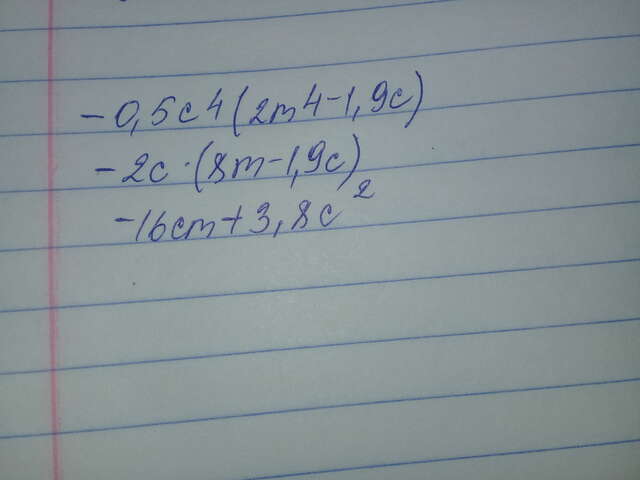 -0,5c4(2m4-1,9c)
-2c·(8m-1,9c)
-16cm+3,8c²